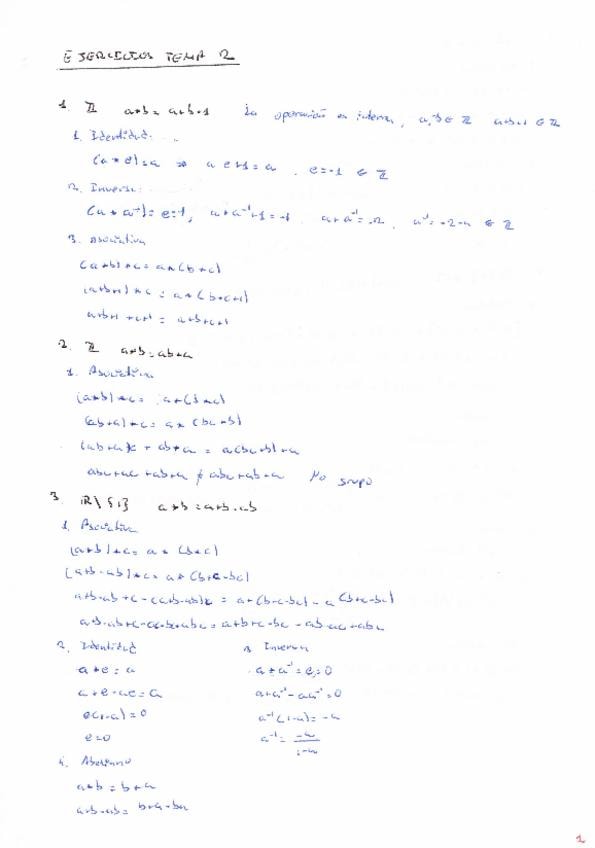 EJERCICIOS TEMA 2
1. ℤ a*b = a+b+1 La operación es interna, a,b ∈ ℤ a+b+1 ∈ ℤ
1. Identidad:
(a * e) = a ⇒ a+e+1 = a. e = -1 ∈ ℤ
2. Inverso:
(a * a⁻¹) = e = -1, a + a⁻¹ + 1 = -1. a + a⁻¹ = -2. a⁻¹ = -2-a ∈ ℤ
3. Asociativa
(a*b)*c = a*(b*c)
(a+b+1)*c = a*(b+c+1)
a+b+1+c+1 = a+b+c+1
2. ℤ a*b = ab+a
1. Asociativa
(a*b)*c = a*(b*c)
(ab+a)*c = a*(bc+b)
(ab+a)c + ab+a = a(bc+b)+a
abc+ac+ab+a ≠ abc+ab+a No grupo
3. ℝ\{1} a*b = a+b-ab
1. Asociativa
(a*b)*c = a*(b*c)
(a+b-ab)*c = a*(b+c-bc)
a+b-ab+c-(a+b-ab)c = a+(b+c-bc)-a(b+c-bc)
a+b-ab+c-ac-bc+abc = a+b+c-bc-ab-ac+abc
2. Identidad
a*e = a
a+e-ae = a
e(1-a) = 0
e = 0
3. Inverso
a*a⁻¹ = e = 0
a+a⁻¹-aa⁻¹ = 0
a⁻¹(1-a) = -a
a⁻¹ = -a/(1-a)
4. Abeliano
a*b = b*a
a+b-ab = b+a-ba
1